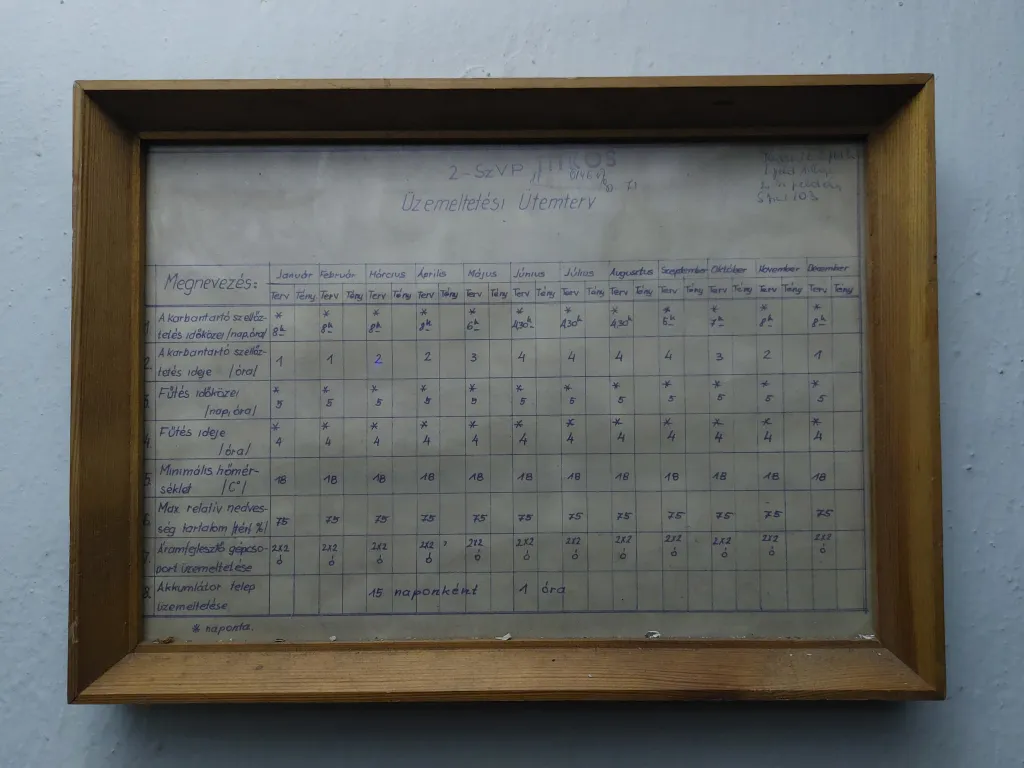 2-SzVP „TITKOS
Üzemeltetési Ütemterv
Megnevezés: Január Február Március Április Május Június Július Augusztus Szeptember Október November December
Terv Tény Terv Tény Terv Tény Terv Tény Terv Tény Terv Tény Terv Tény Terv Tény Terv Tény Terv Tény Terv Tény Terv Tény
1. A karbantartó szellőz- * * * * * * * * * * * *
tetés időközei /nap,óra/ 8h 8h 8h 8h 6h 430h 430h 430h 5h 7h 8h 8h
2. A karbantartó szellőz-
tetés ideje /óra/ 1 1 2 2 3 4 4 4 4 3 2 1
3. Fűtés időközei * * * * * * * * * * * *
/nap,óra/ 5 5 5 5 5 5 5 5 5 5 5 5
4. Fűtés ideje * * * * * * * * * * * *
/óra/ 4 4 4 4 4 4 4 4 4 4 4 4
5. Minimális hőmér-
séklet /C°/ 18 18 18 18 18 18 18 18 18 18 18 18
6. Max relatív nedves-
ség tartalom /térf %/ 75 75 75 75 75 75 75 75 75 75 75 75
7. Áramfejlesztő gépcso- 2x2 2x2 2x2 2x2 2x2 2x2 2x2 2x2 2x2 2x2 2x2 2x2
port üzemeltetése ó ó ó ó ó ó ó ó ó ó ó ó
8. Akkumlátor telep 15 naponként 1 óra
üzemeltetése
* naponta.